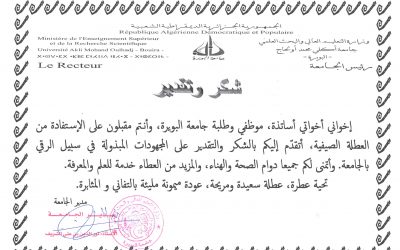 الجمهورية الجزائرية الديمقراطية الشعبية
République Algérienne Démocratique et Populaire
Ministère de l'Enseignement Supérieur
et de la Recherche Scientifique
Université Akli Mohand Oulhadj - Bouira -
Le Recteur
وزارة التعليم العالي والبحث العلمي
جامعة أكلي محند أولحاج
- البويرة -
رئيس الجامعة
شكر وتقدير
إخواني أخواتي أساتذة، موظفي وطلبة جامعة البويرة، وأنتم مقبلون على الإستفادة من
العطلة الصيفية، أتقدّم إليكم بالشكر والتقدير على المجهودات المبذولة في سبيل الرقي
بالجامعة. وأتمنى لكم جميعا دوام الصحة والهناء، والمزيد من العطاء خدمة للعلم والمعرفة.
تحية عطرة، عطلة سعيدة ومريحة، عودة ميمونة مليئة بالتفاني و المثابرة.
مدير الجامعة